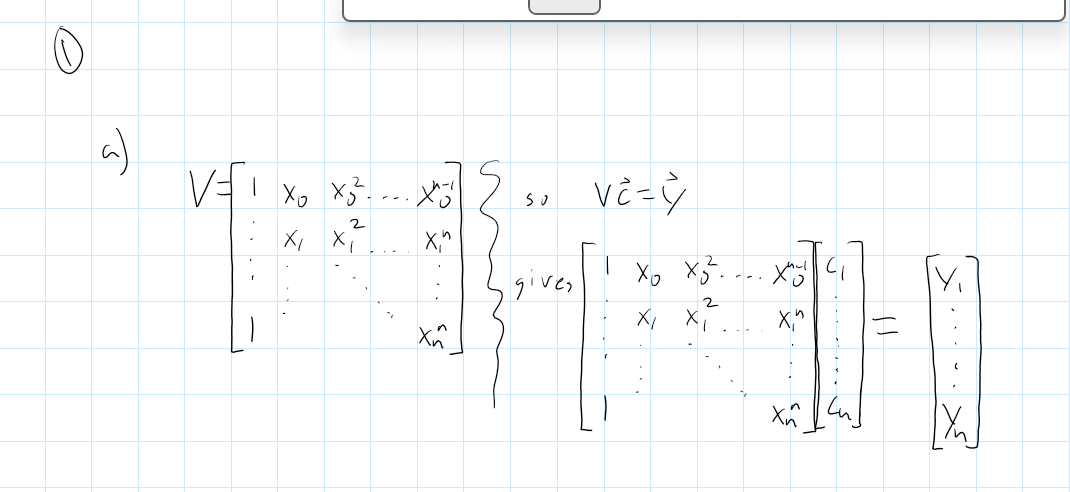 ①
a)
V = [ 1 x₀ x₀² .... x₀ⁿ⁻¹ ; ⋮ x₁ x₁² .... x₁ⁿ ; ⋮ ⋮ ⋱ ⋮ ; 1 xₙⁿ ] } so Vc⃗ = y⃗
gives [ 1 x₀ x₀² .... x₀ⁿ⁻¹ ; ⋮ x₁ x₁² .... x₁ⁿ ; ⋮ ⋮ ⋱ ⋮ ; 1 xₙⁿ ] [ c₁ ; ⋮ ; cₙ ] = [ y₁ ; ⋮ ; yₙ ]